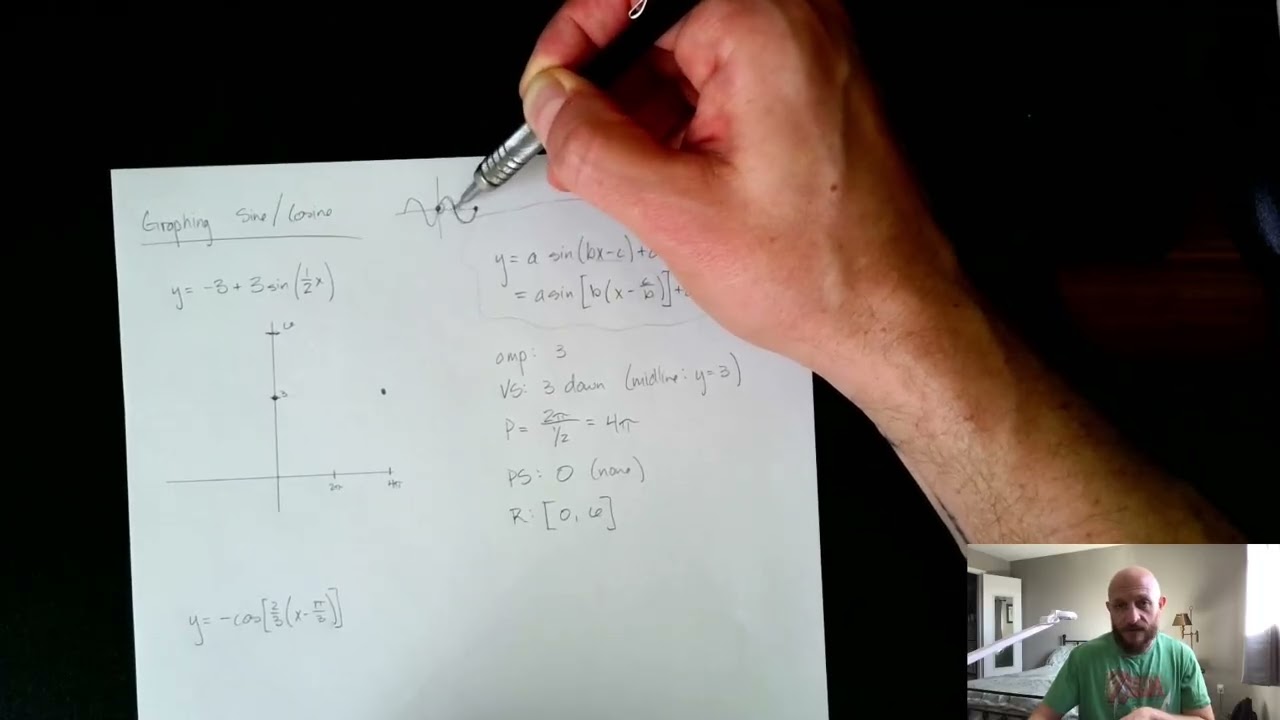 Graphing Sine/Cosine
y = -3 + 3 sin (1/2 x)
6
3
2π
4π
y = a sin(bx-c)+
= a sin[b(x - c/b)]+
amp: 3
VS: 3 down (midline: y=3)
P = 2π / 1/2 = 4π
PS: 0 (none)
R: [0, 6]
y = -cos[2/3(x - π/3)]